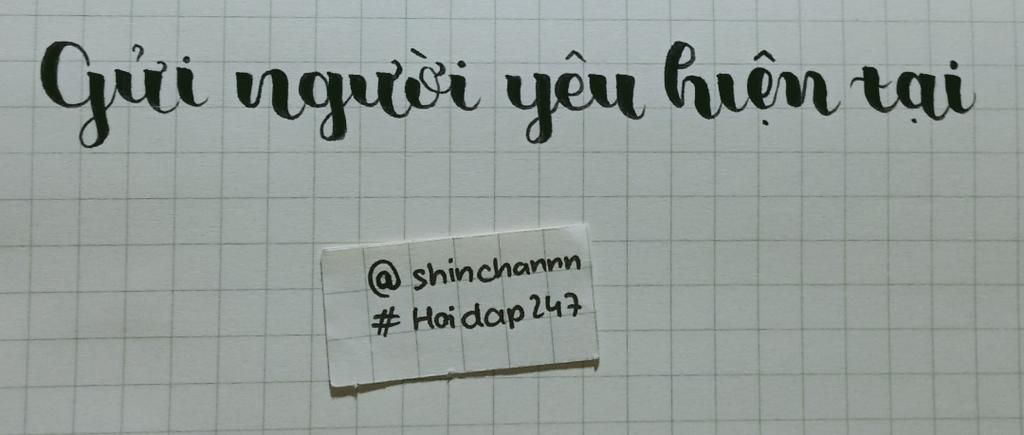 Gửi người yêu hiện tại
@ shinchannn
# Hoidap247